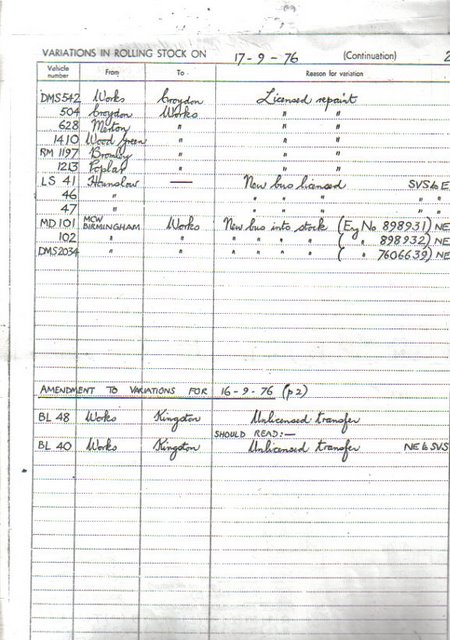 VARIATIONS IN ROLLING STOCK ON 17-9-76 (Continuation) 2
Vehicle number From To Reason for variation
DMS 542 Works Croydon Licensed repaint
504 Croydon Works " "
628 Merton " " "
1410 Wood Green " " "
RM 1197 Bromley " " "
1213 Poplar " " "
LS 41 Hounslow — New bus licensed SVS to E
46 " " " " " "
47 " " " " " "
MD 101 MCW BIRMINGHAM Works New bus into stock (Eng No 898931) NE
102 " " " " " " ( " 898932) NE
DMS2034 " " " " " " ( " 7606639) NE
AMENDMENT TO VARIATIONS FOR 16-9-76 (p2)
BL 48 Works Kingston Unlicensed transfer
SHOULD READ:—
BL 40 Works Kingston Unlicensed transfer NE to SVS